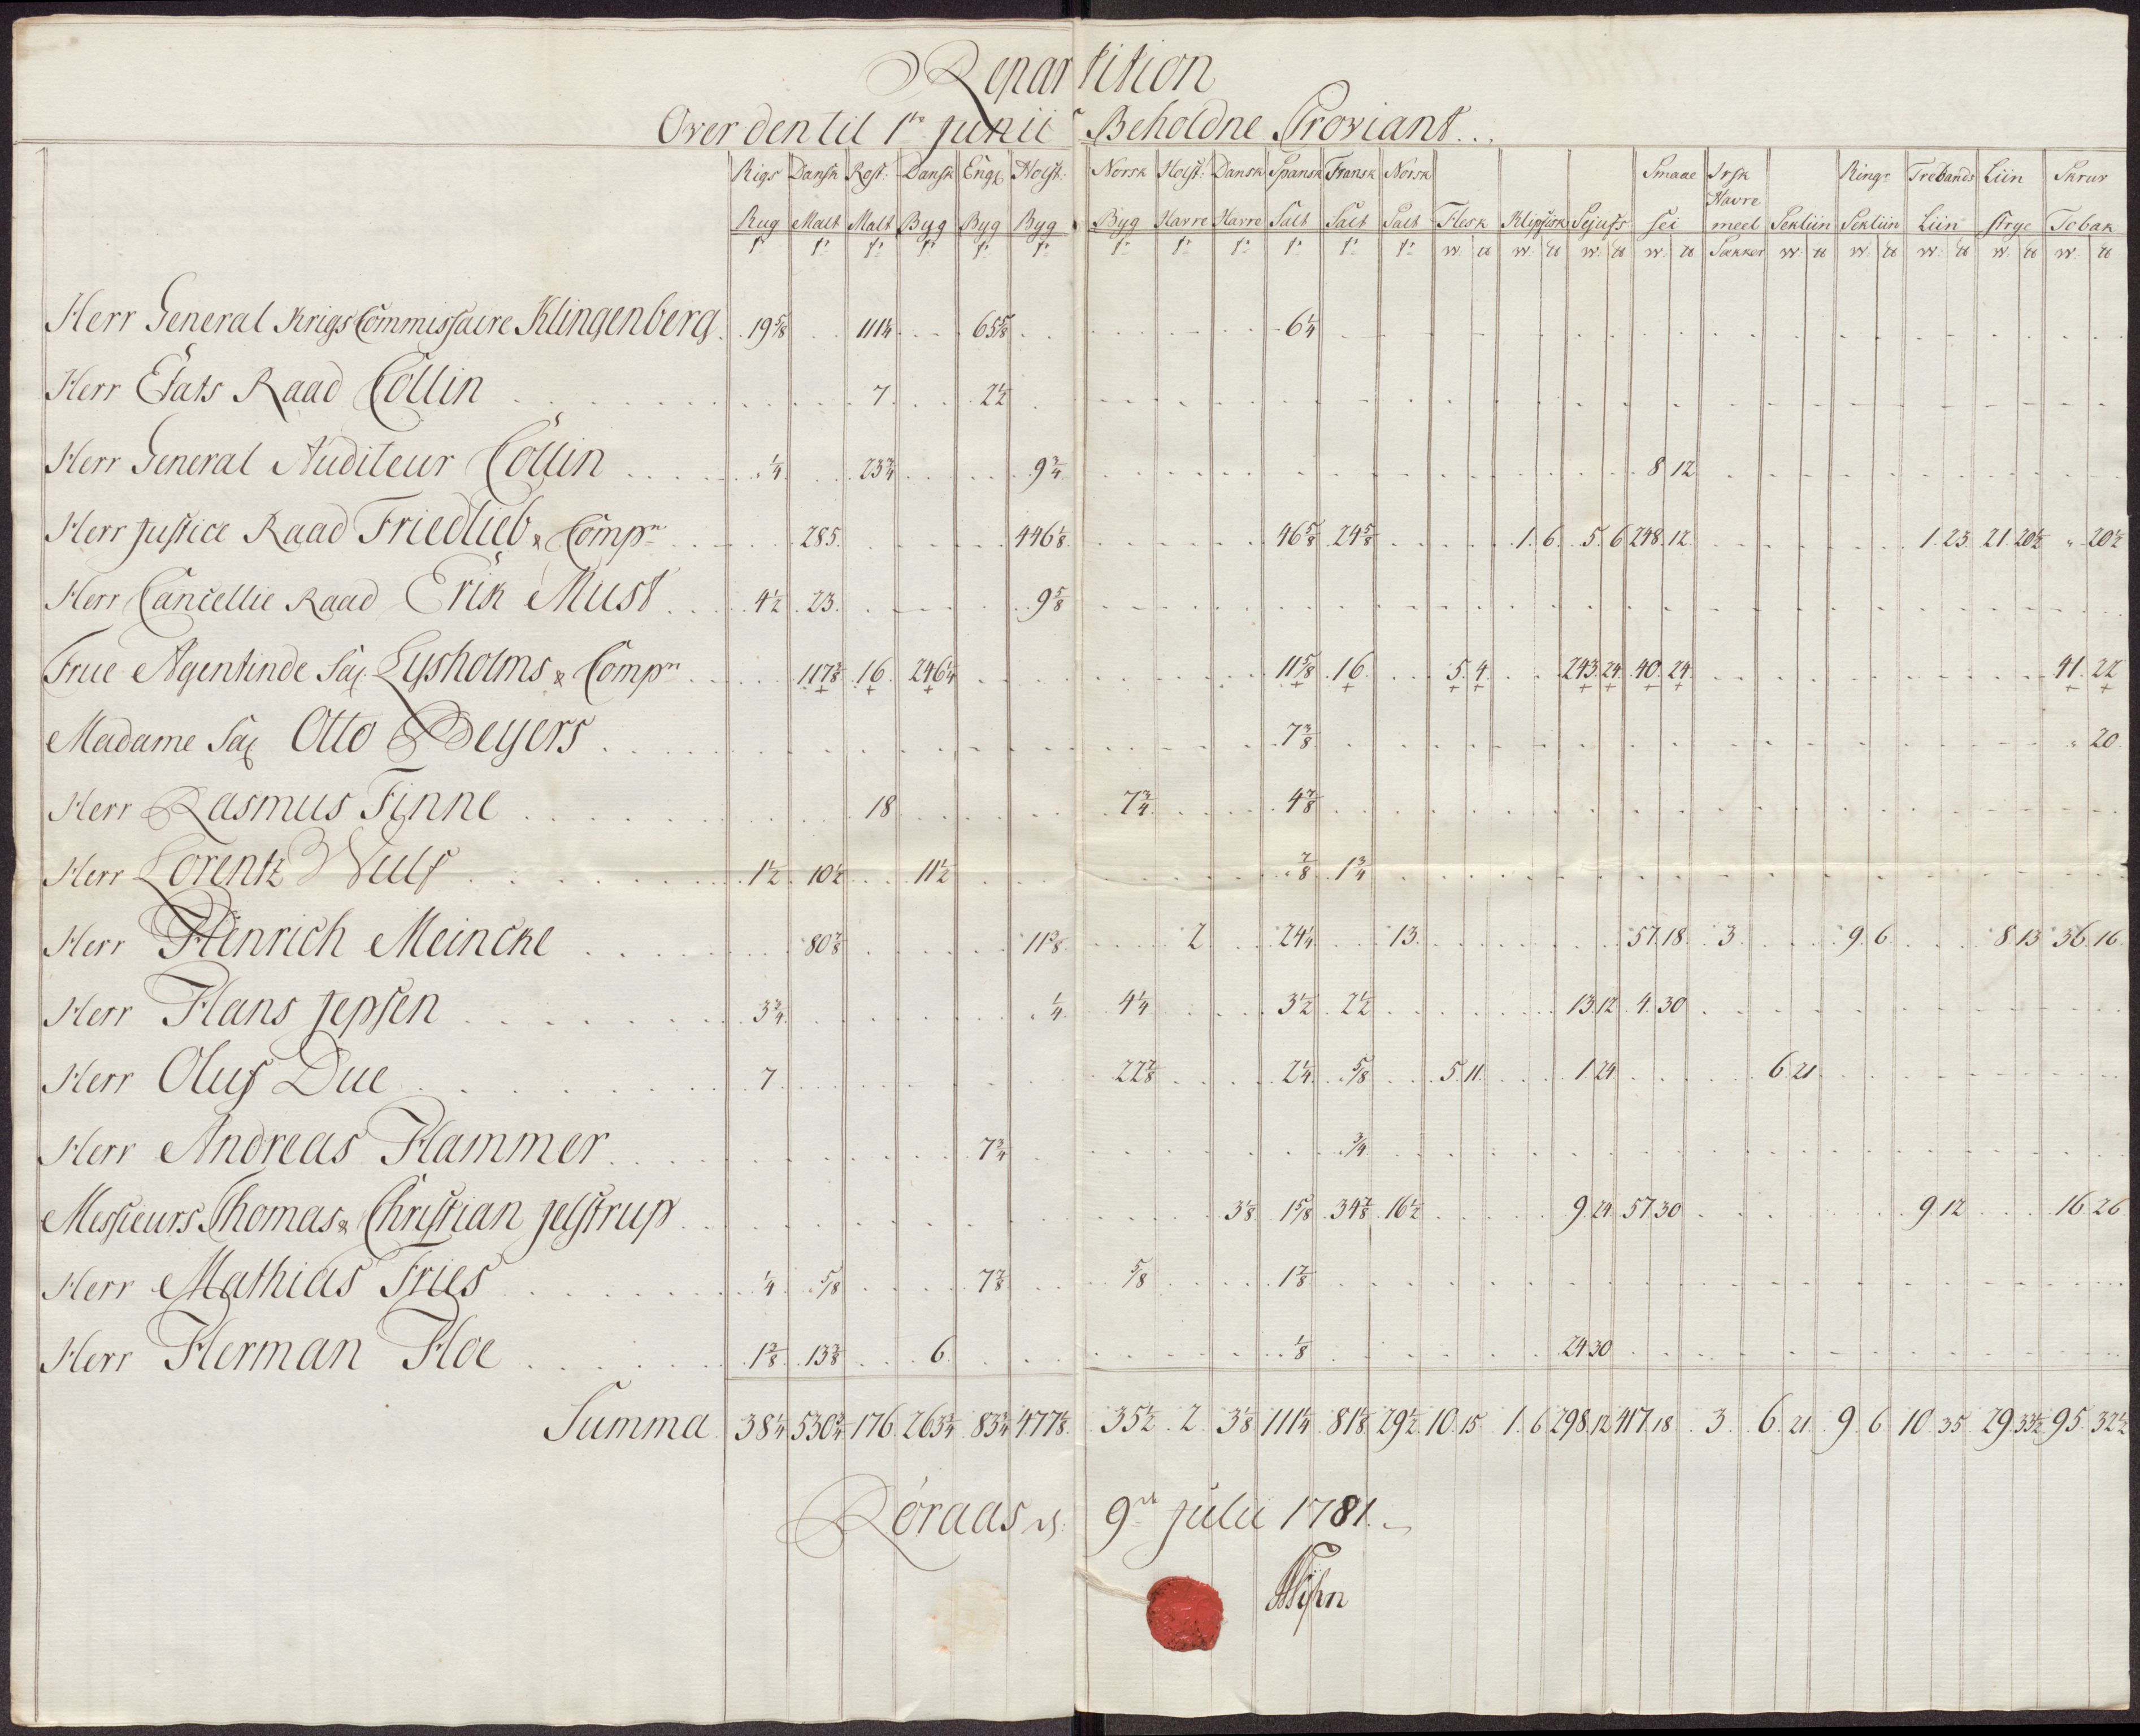 Repartition
Over den til 1te Junii Beholdne Proviant...
Rigs Dansk Rost: Dansk Engl Holst: Norsk Holst: Dansk Spansk Fransk Norsk Smaae Irsk Rings Trebands Liin Skrur
Havre
Rug Malt Malt Byg Byg Byg Byg Havre Havre Salt Salt Salt Flesk Klipfisk Sejufs Sei meel Sekliin Sekliin Liin strye Tobak
Sækker
Herr General Krigs Commissaire Klingenberg 19 5/8 111 1/4 65 5/8 6 1/4
Herr Etats Raad Collin 7 2 1/2
Herr General Auditeur Collin 1/4 23 3/4 9 3/4 8 12
Herr Justice Raad Friedlieb & Compn 285 446 1/8 46 5/8 24 5/8 1 6 5 6 248 12 1 23 21 20 1/2 " 20 1/2
Herr Cancellie Raad Erik Must 4 1/2 23 9 5/8
Frue Agentinde Sal Lysholms & Compn 117 3/8 16 246 1/4 11 5/8 16 5 4 243 24 40 24 41 22
Madame Sal Otto Beyers 7 3/8 " 20
Herr Rasmus Finne 18 7 3/4 4 7/8
Herr Lorentz Wulf 1 1/2 10 1/2 11 1/2 7/8 1 3/4
Herr Hinrich Meincke 80 7/8 11 3/8 2 24 1/4 13 57 18 3 9 6 8 13 36 16
Herr Hans Jepsen 3 3/4 1/4 4 1/4 3 1/2 2 1/2 13 12 4 30
Herr Oluf Due 7 22 7/8 2 1/4 5/8 5 11 1 24 6 21
Herr Andreas Hammer 7 3/4 3/4
Messieurs Thomas & Christian Jelstrup 3 1/8 1 5/8 34 7/8 16 1/2 9 24 57 30 9 12 16 26
Herr Mathias Fries 1/4 5/8 7 7/8 5/8 1 7/8
Herr Herman Hoe 1 3/8 13 3/8 6 1/8 24 30
Summa 38 1/4 530 3/4 176 263 3/4 83 3/4 477 1/8 35 1/2 2 3 1/8 111 1/4 81 1/8 29 1/2 10 15 1 6 298 12 417 18 3 6 21 9 6 10 35 29 33 1/2 95 32 1/2
Röraas d: 9de Julii 1781.